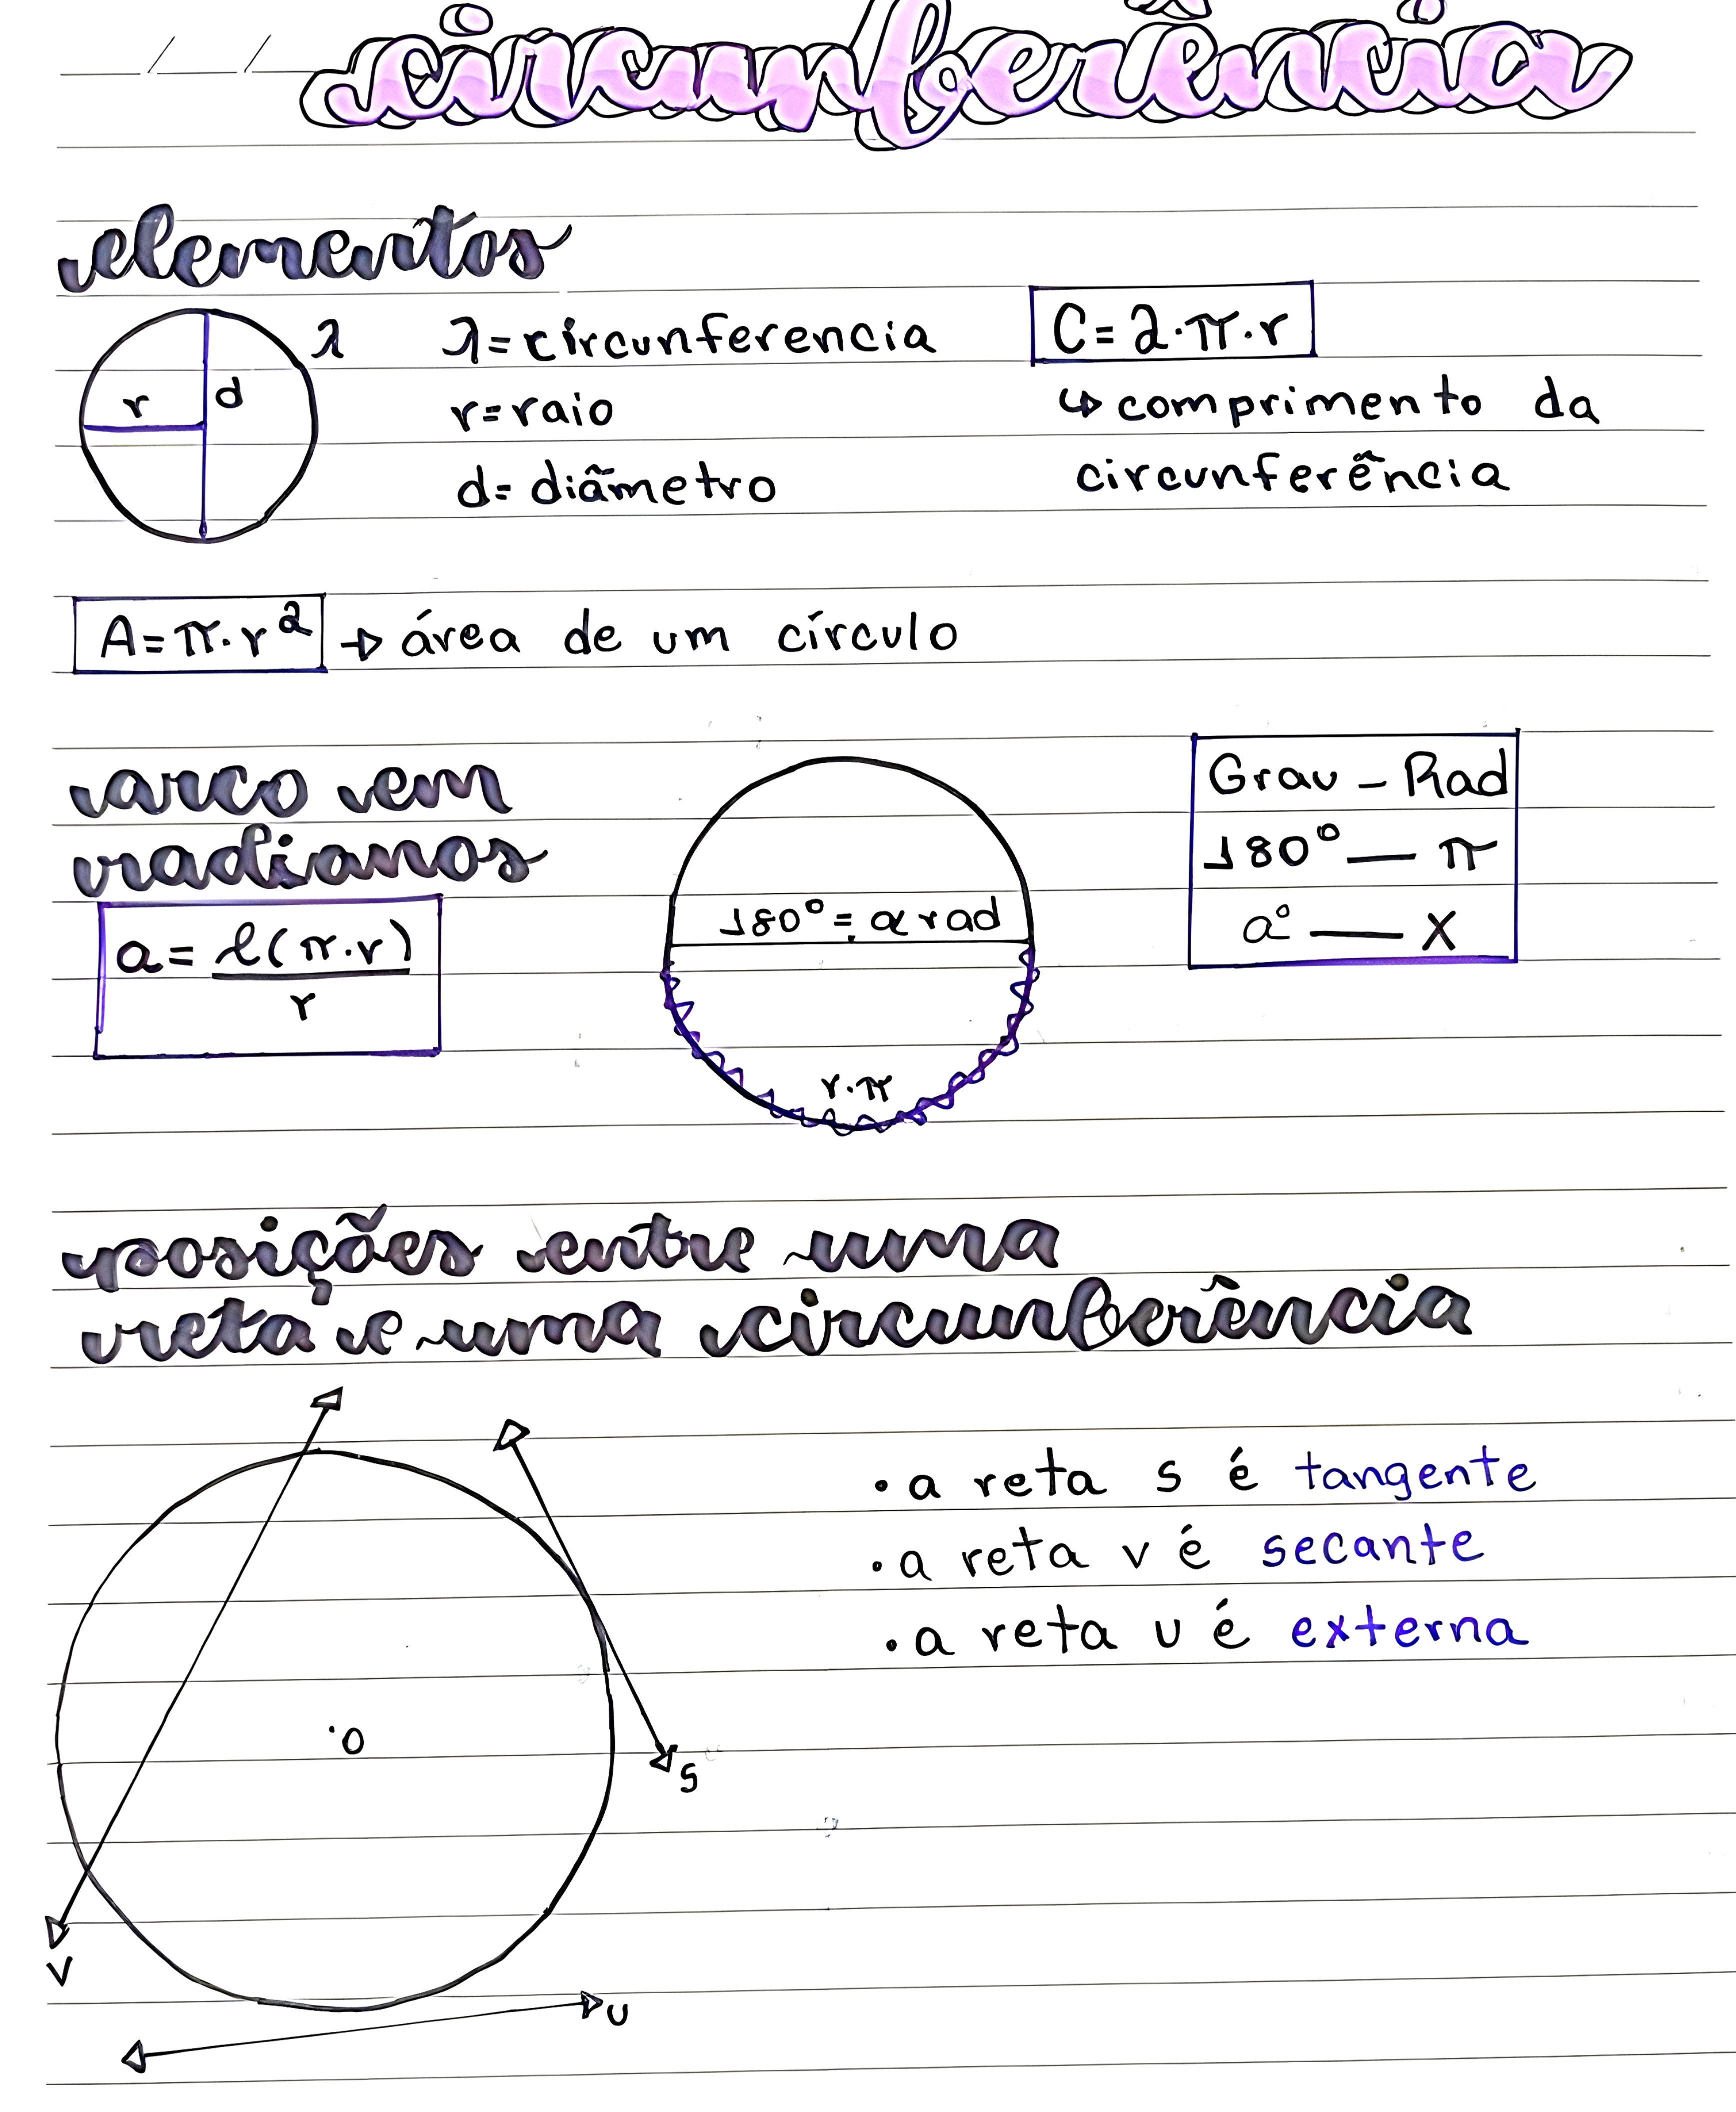 circunferência
elementos
λ
r
d
λ=circunferencia
r=raio
d=diâmetro
C=2·π·r
↳ comprimento da
circunferência
A=π·r² → área de um círculo
arco em
radianos
a= l(π·r)
r
180°=α rad
r·π
Grau - Rad
180° — π
a° — X
posições entre uma
reta e uma circunferência
·O
S
V
U
• a reta s é tangente
• a reta v é secante
• a reta u é externa